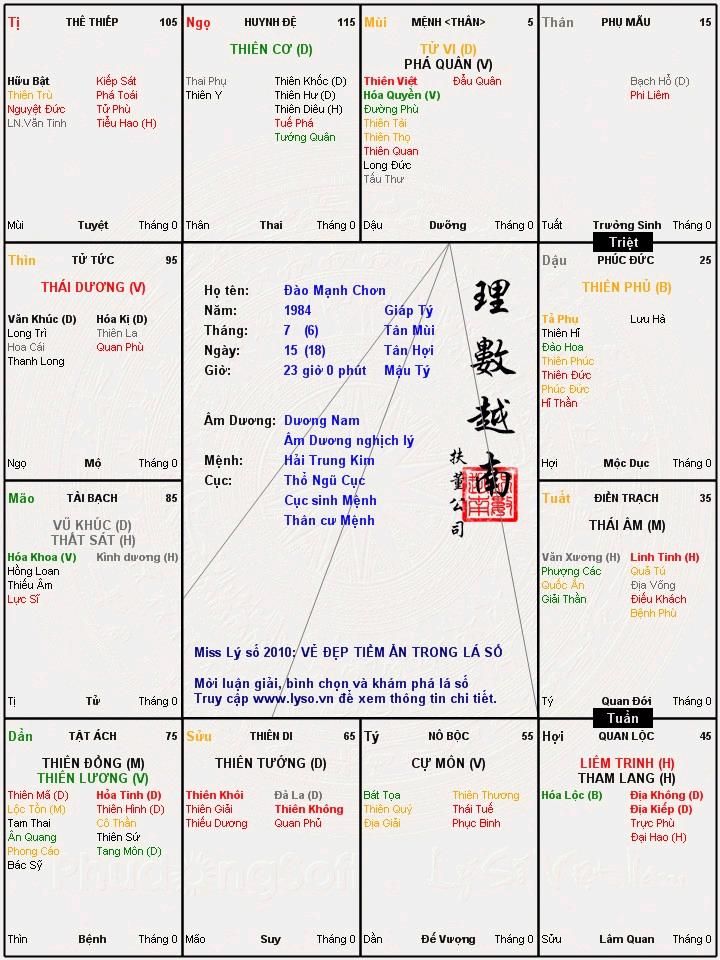 Tị THÊ THIẾP 105
Hữu Bật Kiếp Sát
Thiên Trù Phá Toái
Nguyệt Đức Tử Phù
LN.Văn Tinh Tiểu Hao (H)
Mùi Tuyệt Tháng 0
Ngọ HUYNH ĐỆ 115
THIÊN CƠ (D)
Thai Phụ Thiên Khốc (D)
Thiên Y Thiên Hư (D)
Thiên Diêu (H)
Tuế Phá
Tướng Quân
Thân Thai Tháng 0
Mùi MỆNH <THÂN> 5
TỬ VI (D)
PHÁ QUÂN (V)
Thiên Việt Đẩu Quân
Hóa Quyền (V)
Đường Phù
Thiên Tài
Thiên Thọ
Thiên Quan
Long Đức
Tấu Thư
Dậu Dưỡng Tháng 0
Thân PHỤ MẪU 15
Bạch Hổ (D)
Phi Liêm
Tuất Trưởng Sinh Tháng 0
Triệt
Thìn TỬ TỨC 95
THÁI DƯƠNG (V)
Văn Khúc (D) Hóa Kị (D)
Long Trì Thiên La
Hoa Cái Quan Phù
Thanh Long
Ngọ Mộ Tháng 0
Họ tên: Đào Mạnh Chơn
Năm: 1984 Giáp Tý
Tháng: 7 (6) Tân Mùi
Ngày: 15 (18) Tân Hợi
Giờ: 23 giờ 0 phút Mậu Tý
Âm Dương: Dương Nam
Âm Dương nghịch lý
Mệnh: Hải Trung Kim
Cục: Thổ Ngũ Cục
Cục sinh Mệnh
Thân cư Mệnh
理數越南
扶董公司
Miss Lý số 2010: VẺ ĐẸP TIỀM ẨN TRONG LÁ SỐ
Mời luận giải, bình chọn và khám phá lá số
Truy cập www.lyso.vn để xem thông tin chi tiết.
Dậu PHÚC ĐỨC 25
THIÊN PHỦ (B)
Tả Phụ Lưu Hà
Thiên Hỉ
Đào Hoa
Thiên Phúc
Thiên Đức
Phúc Đức
Hỉ Thần
Hợi Mộc Dục Tháng 0
Mão TÀI BẠCH 85
VŨ KHÚC (D)
THẤT SÁT (H)
Hóa Khoa (V) Kình dương (H)
Hồng Loan
Thiếu Âm
Lực Sĩ
Tị Tử Tháng 0
Tuất ĐIỀN TRẠCH 35
THÁI ÂM (M)
Văn Xương (H) Linh Tinh (H)
Phượng Các Quả Tú
Quốc Ấn Địa Võng
Giải Thần Điếu Khách
Bệnh Phù
Tý Quan Đới Tháng 0
Tuần
Dần TẬT ÁCH 75
THIÊN ĐỒNG (M)
THIÊN LƯƠNG (V)
Thiên Mã (D) Hỏa Tinh (D)
Lộc Tồn (M) Thiên Hình (D)
Tam Thai Cô Thần
Ân Quang Thiên Sứ
Phong Cáo Tang Môn (D)
Bác Sỹ
Thìn Bệnh Tháng 0
Sửu THIÊN DI 65
THIÊN TƯỚNG (D)
Thiên Khôi Đà La (D)
Thiên Giải Thiên Không
Thiếu Dương Quan Phủ
Mão Suy Tháng 0
Tý NÔ BỘC 55
CỰ MÔN (V)
Bát Tọa Thiên Thương
Thiên Quý Thái Tuế
Địa Giải Phục Binh
Dần Đế Vượng Tháng 0
Hợi QUAN LỘC 45
LIÊM TRINH (H)
THAM LANG (H)
Hóa Lộc (B) Địa Không (D)
Địa Kiếp (D)
Trực Phù
Đại Hao (H)
Sửu Lâm Quan Tháng 0
Phudongsoft Lý Số Việt Nam